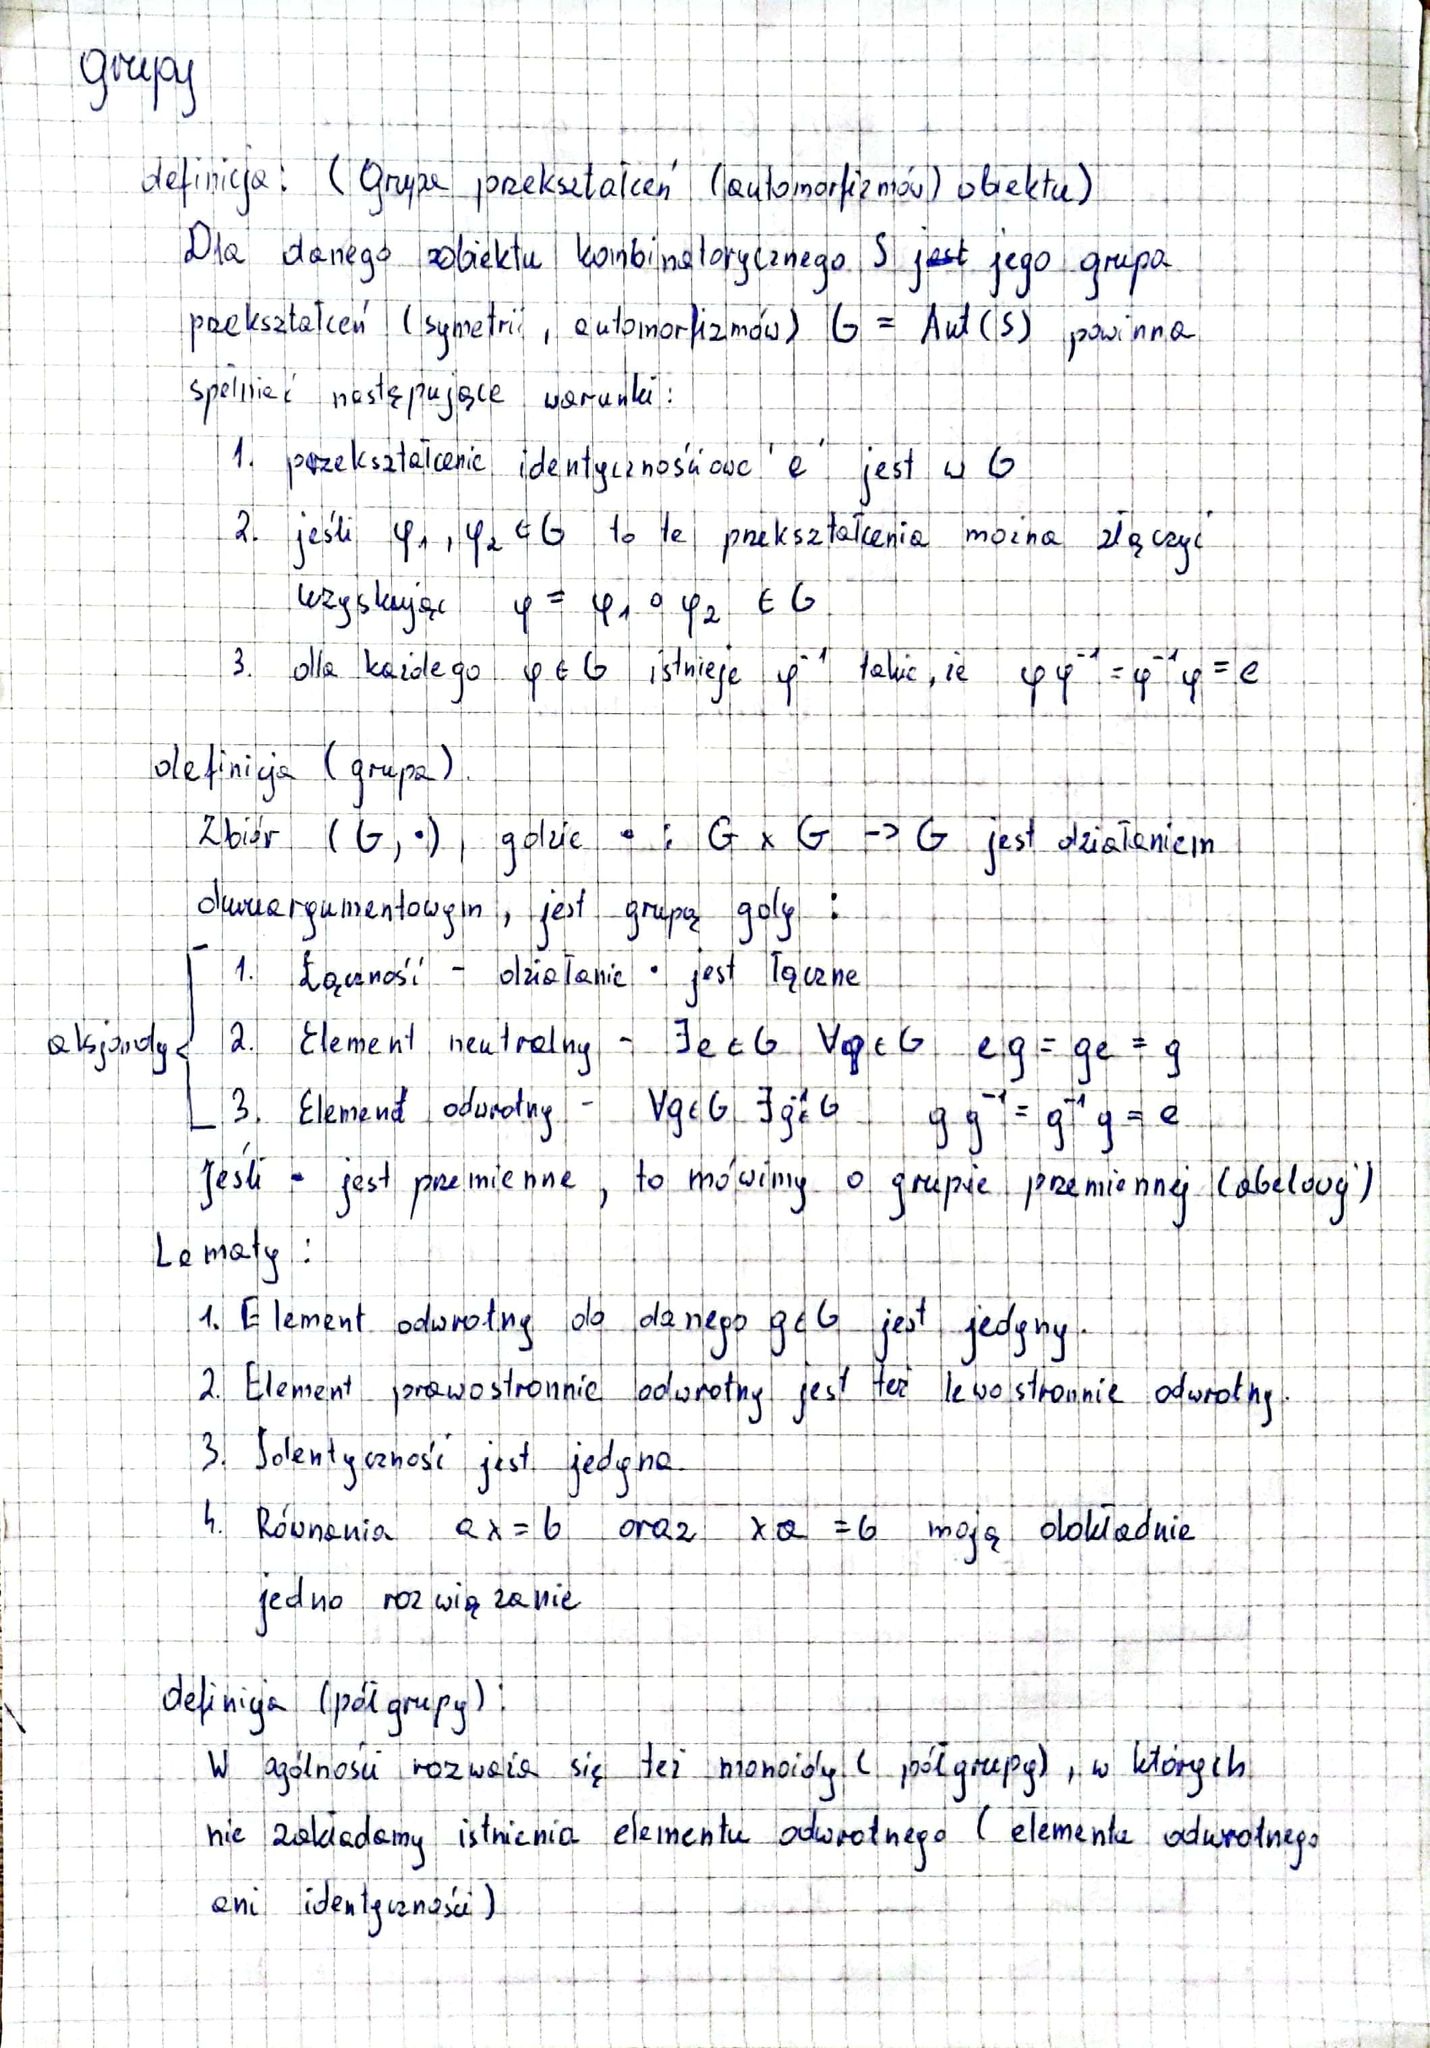 Grupy
definicja: (Grupa przekształceń (automorfizmów) obiektu)
Dla danego obiektu kombinatorycznego S jest jego grupa
przekształceń (symetrii, automorfizmów) G = Aut(S) powinna
spełniać następujące warunki:
1. przekształcenie identycznościowe 'e' jest w G
2. jeśli φ₁, φ₂ ∈ G to te przekształcenia można złączyć
uzyskując φ = φ₁ ∘ φ₂ ∈ G
3. dla każdego φ ∈ G istnieje φ⁻¹ takie, że φφ⁻¹ = φ⁻¹φ = e
definicja (grupa).
Zbiór (G, •), gdzie • : G x G -> G jest działaniem
dwuargumentowym, jest grupą gdy :
1. Łączność - działanie • jest łączne
aksjomaty 2. Element neutralny - ∃e∈G ∀g∈G eg = ge = g
3. Element odwrotny - ∀g∈G ∃g⁻¹∈G gg⁻¹ = g⁻¹g = e
Jeśli • jest przemienne, to mówimy o grupie przemiennej (abelowej)
Lematy :
1. Element odwrotny do danego g∈G jest jedyny.
2. Element prawostronnie odwrotny jest też lewostronnie odwrotny.
3. Identyczność jest jedyna.
4. Równania ax = b oraz xa = b mają dokładnie
jedno rozwiązanie
definicja (półgrupy):
W ogólności rozważa się też monoidy (półgrupy), w których
nie zakładamy istnienia elementu odwrotnego (elementu odwrotnego
ani identyczności)